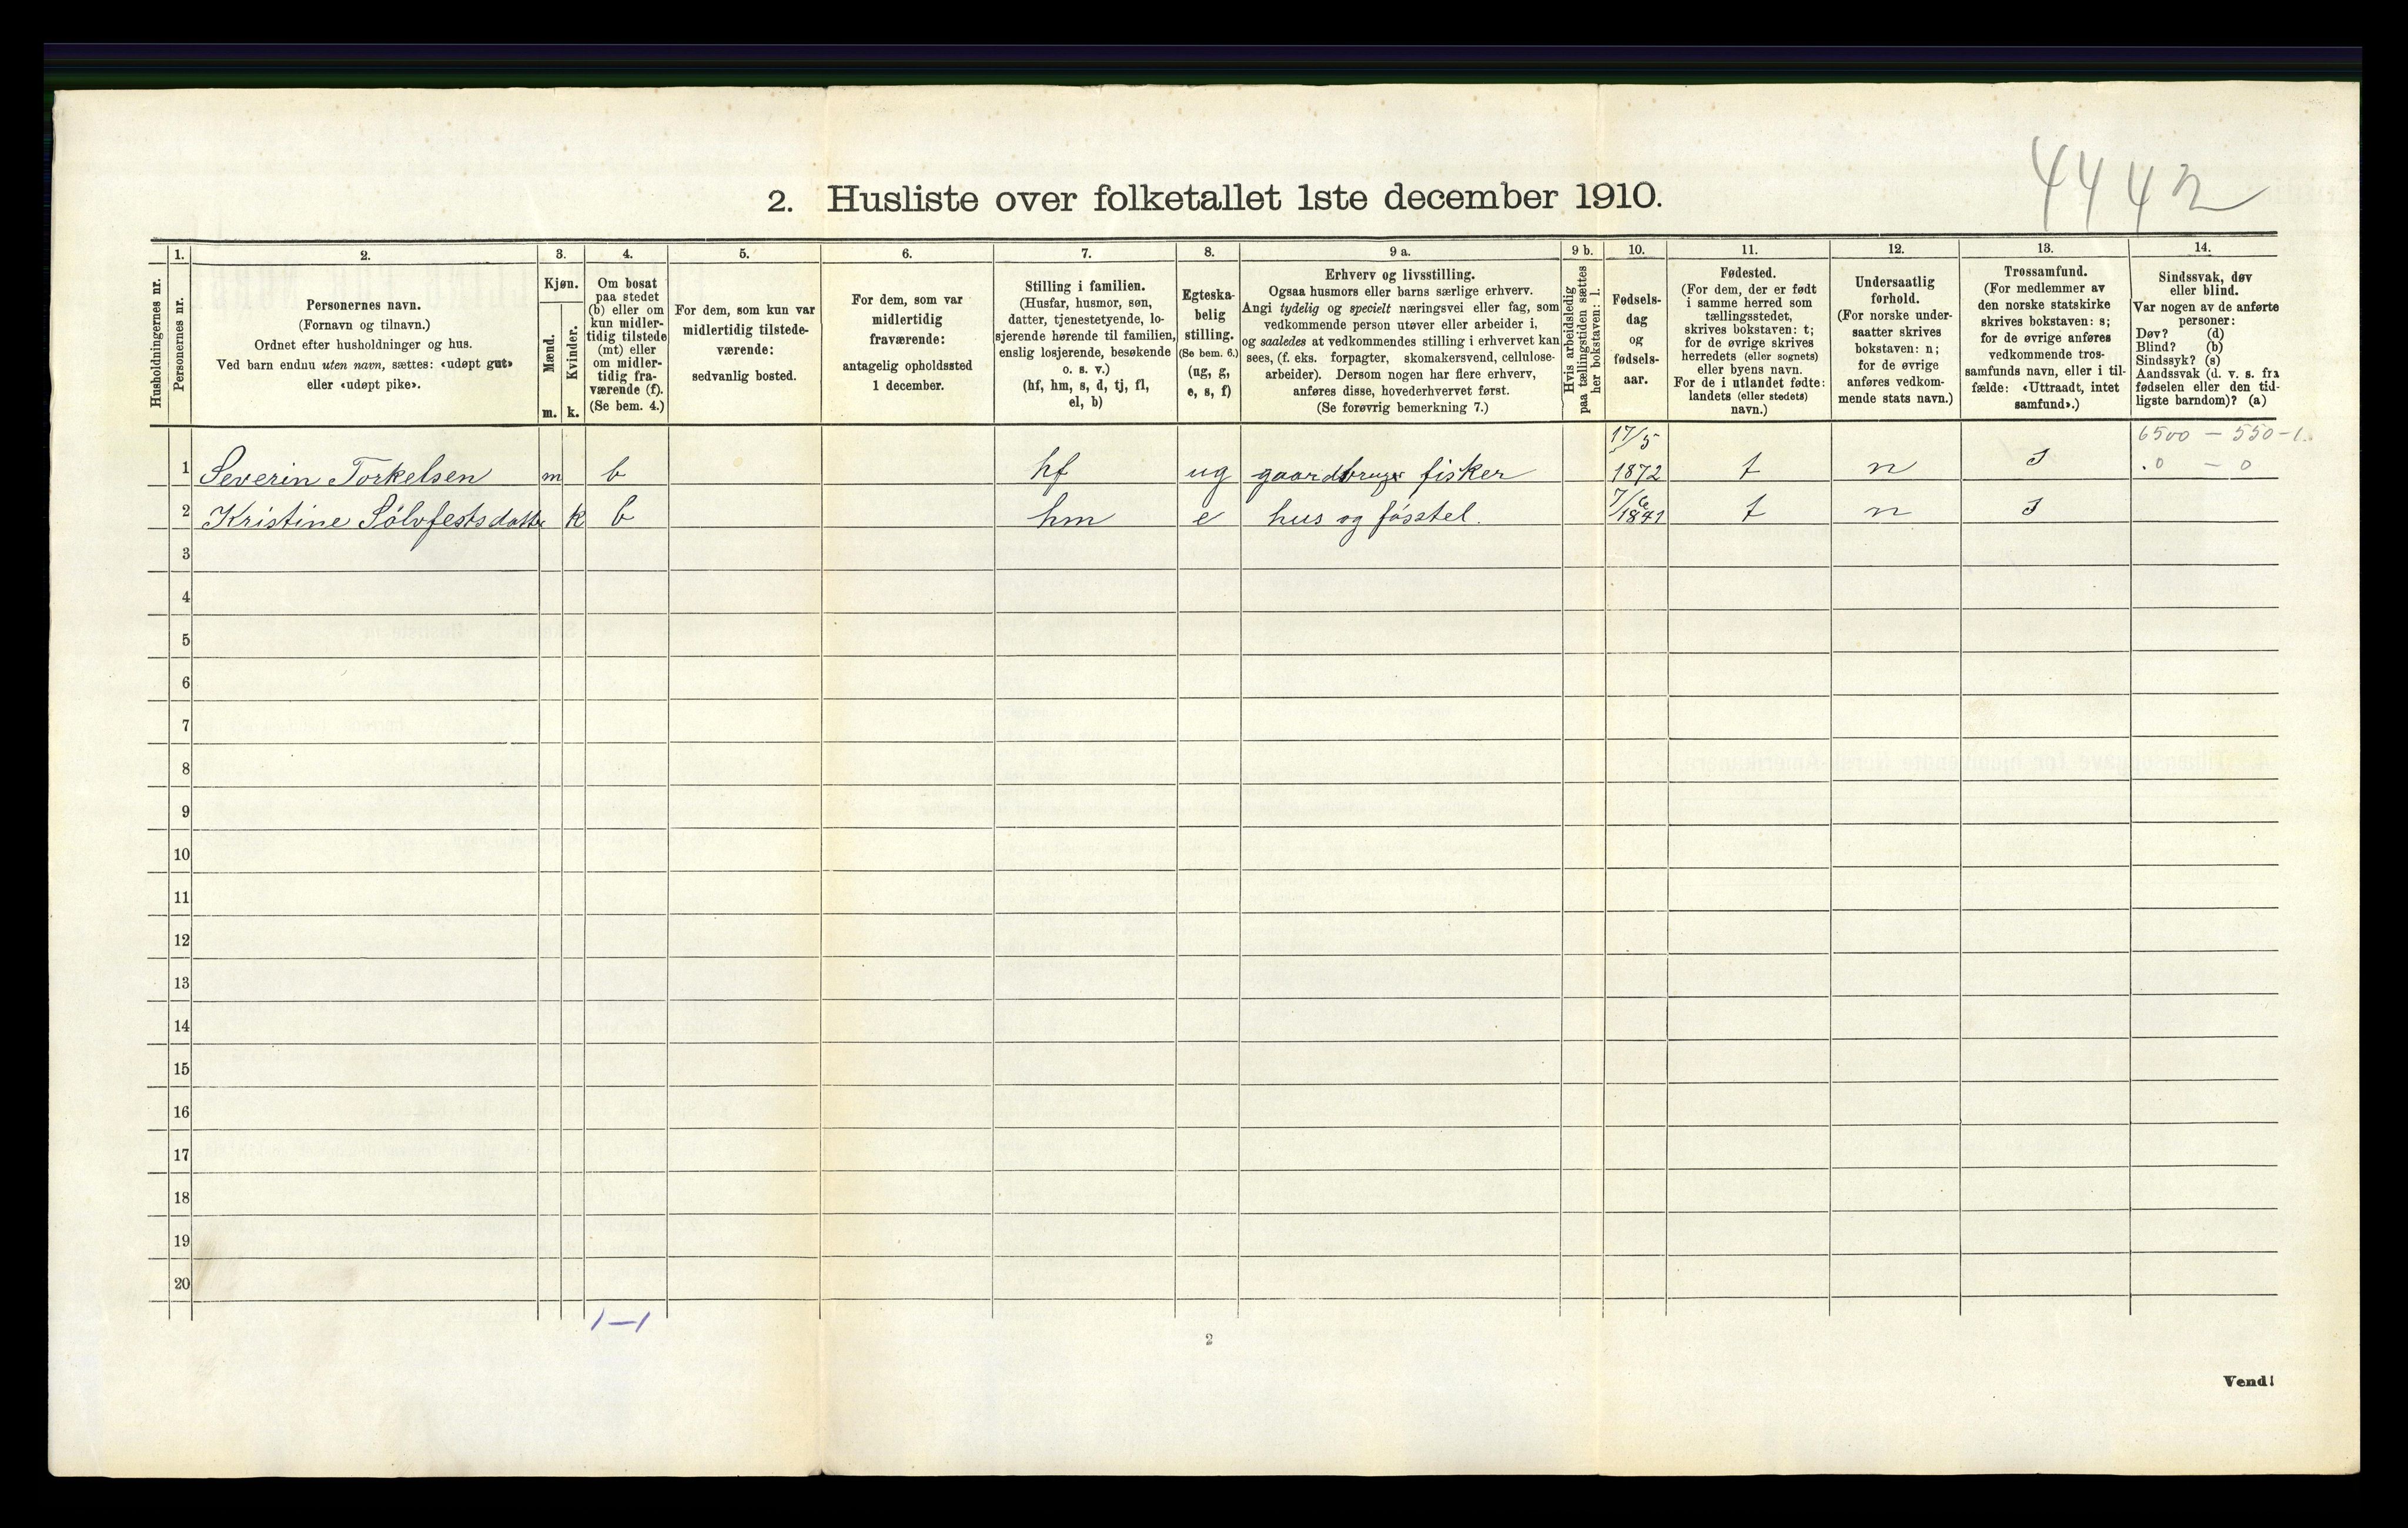 4442
2. Husliste over folketallet 1ste december 1910.
Husholdningernes nr.
1.
Personernes nr.
2.
Personernes navn.
(Fornavn og tilnavn.)
Ordnet efter husholdninger og hus.
Ved barn endnu uten navn, sættes: «udøpt gut»
eller «udøpt pike».
3.
Kjøn.
Mænd.
Kvinder.
m. k.
4.
Om bosat
paa stedet
(b) eller om
kun midler-
tidig tilstede
(mt) eller
om midler-
tidig fra-
værende (f).
(Se bem. 4.)
5.
For dem, som kun var
midlertidig tilstede-
værende:
sedvanlig bosted.
6.
For dem, som var
midlertidig
fraværende:
antagelig opholdssted
1 december.
7.
Stilling i familien.
(Husfar, husmor, søn,
datter, tjenestetyende, lo-
sjerende hørende til familien,
enslig losjerende, besøkende
o. s. v.)
(hf, hm, s, d, tj, fl,
el, b)
8.
Egteska-
belig
stilling.
(Se bem. 6.)
(ug, g,
e, s, f)
9 a.
Erhverv og livsstilling.
Ogsaa husmors eller barns særlige erhverv.
Angi tydelig og specielt næringsvei eller fag, som
vedkommende person utøver eller arbeider i,
og saaledes at vedkommendes stilling i erhvervet kan
sees, (f. eks. forpagter, skomakersvend, cellulose-
arbeider). Dersom nogen har flere erhverv,
anføres disse, hovederhvervet først.
(Se forøvrig bemerkning 7.)
9 b.
Hvis arbeidsledig
paa tællingstiden sættes
her bokstaven: l.
10.
Fødsels-
dag
og
fødsels-
aar.
11.
Fødested.
(For dem, der er født
i samme herred som
tællingsstedet,
skrives bokstaven: t;
for de øvrige skrives
herredets (eller sognets)
eller byens navn.
For de i utlandet fødte:
landets (eller stedets)
navn.)
12.
Undersaatlig
forhold.
(For norske under-
saatter skrives
bokstaven: n;
for de øvrige
anføres vedkom-
mende stats navn.)
13.
Trossamfund.
(For medlemmer av
den norske statskirke
skrives bokstaven: s;
for de øvrige anføres
vedkommende tros-
samfunds navn, eller i til-
fælde: «Uttraadt, intet
samfund».)
14.
Sindssvak, døv
eller blind.
Var nogen av de anførte
personer:
Døv? (d)
Blind? (b)
Sindssyk? (s)
Aandssvak (d. v. s. fra
fødselen eller den tid-
ligste barndom)? (a)
17/5 6500 - 550-1.
1 Severin Torkelsen m b hf ug gaardbruger fisker 1872 t n s .0 - 0
7/6
2 Kristine Sölvfestsdatter k b hm e hus og fösstel. 1841 t n s
3
4
5
6
7
8
9
10
11
12
13
14
15
16
17
18
19
20
1-1
2
Vend!